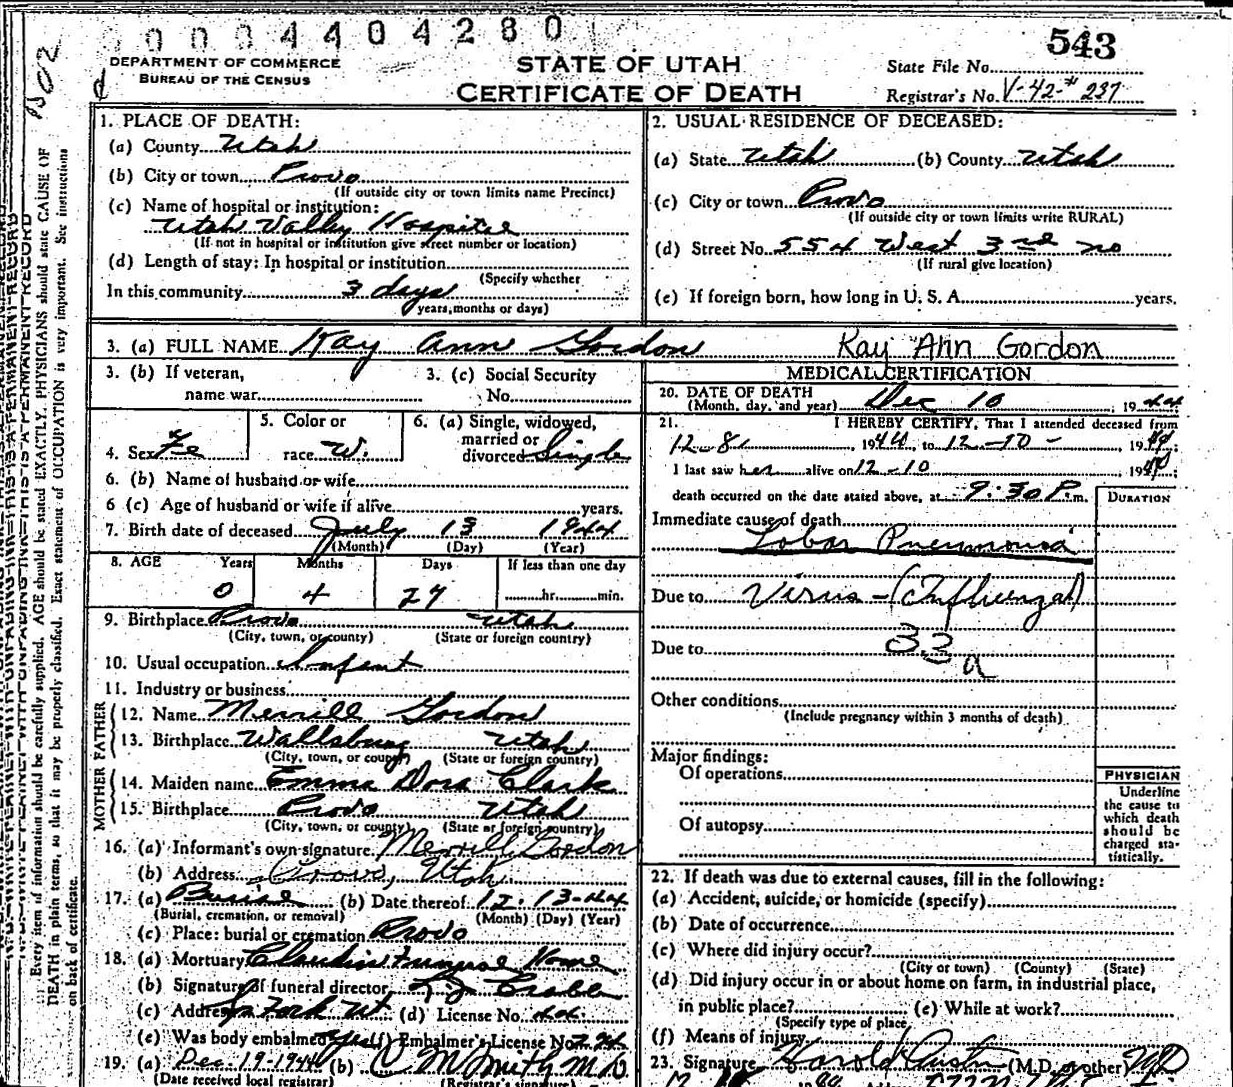 0 0 0 4 4 0 4 2 8 0
543
DEPARTMENT OF COMMERCE
BUREAU OF THE CENSUS
STATE OF UTAH
CERTIFICATE OF DEATH
State File No.
Registrar's No. V-42-# 237
1. PLACE OF DEATH:
(a) County Utah
(b) City or town Provo
(If outside city or town limits name Precinct)
(c) Name of hospital or institution:
Utah Valley Hospital
(If not in hospital or institution give street number or location)
(d) Length of stay: In hospital or institution
(Specify whether
In this community 3 days
years, months or days)
2. USUAL RESIDENCE OF DECEASED:
(a) State Utah (b) County Utah
(c) City or town Provo
(If outside city or town limits write RURAL)
(d) Street No. 554 West 3rd no
(If rural give location)
(e) If foreign born, how long in U. S. A. years.
3. (a) FULL NAME Kay Ann Gordon Kay Ann Gordon
3. (b) If veteran,
name war
3. (c) Social Security
No.
4. Sex Fe
5. Color or
race W.
6. (a) Single, widowed,
married or
divorced Single
6. (b) Name of husband or wife
6 (c) Age of husband or wife if alive years.
7. Birth date of deceased July 13 1944
(Month) (Day) (Year)
8. AGE Years Months Days If less than one day
0 4 27 hr. min.
9. Birthplace Provo Utah
(City, town, or county) (State or foreign country)
10. Usual occupation Infant
11. Industry or business
FATHER
12. Name Merrill Gordon
13. Birthplace Wallsburg Utah
(City, town, or county) (State or foreign country)
MOTHER
14. Maiden name Emma Dora Clark
15. Birthplace Provo Utah
(City, town, or county) (State or foreign country)
16. (a) Informant's own signature Merrill Gordon
(b) Address Provo, Utah
17. (a) Burial (b) Date thereof 12-13-44
(Burial, cremation, or removal) (Month) (Day) (Year)
(c) Place: burial or cremation Provo
18. (a) Mortuary Claudin Funeral Home
(b) Signature of funeral director
(c) Address Sp Fork Ut. (d) License No. 44
(e) Was body embalmed Yes (f) Embalmer's License No.
19. (a) Dec 19-1944 (b) M Smith M.D.
(Date received local registrar) (Registrar's signature)
MEDICAL CERTIFICATION
20. DATE OF DEATH
(Month, day, and year) Dec 10, 1944
21. I HEREBY CERTIFY, That I attended deceased from
12-8, 1944, to 12-10-, 1944;
I last saw her alive on 12-10 1944;
death occurred on the date stated above, at 9:30 P.m.
DURATION
Immediate cause of death
Lobar Pneumonia
Due to Virus-(Influenza)
Due to 33a
Other conditions
(Include pregnancy within 3 months of death)
Major findings:
Of operations
Of autopsy
PHYSICIAN
Underline
the cause to
which death
should be
charged sta-
tistically.
22. If death was due to external causes, fill in the following:
(a) Accident, suicide, or homicide (specify)
(b) Date of occurrence
(c) Where did injury occur?
(City or town) (County) (State)
(d) Did injury occur in or about home on farm, in industrial place,
in public place? (e) While at work?
(Specify type of place
(f) Means of injury
23. Signature Harold Austin (M.D. or other) MD
Every item of information should be carefully supplied. AGE should be stated EXACTLY. PHYSICIANS should state CAUSE OF
DEATH in plain terms, so that it may be properly classified. Exact statement of OCCUPATION is very important. See instructions
on back of certificate.